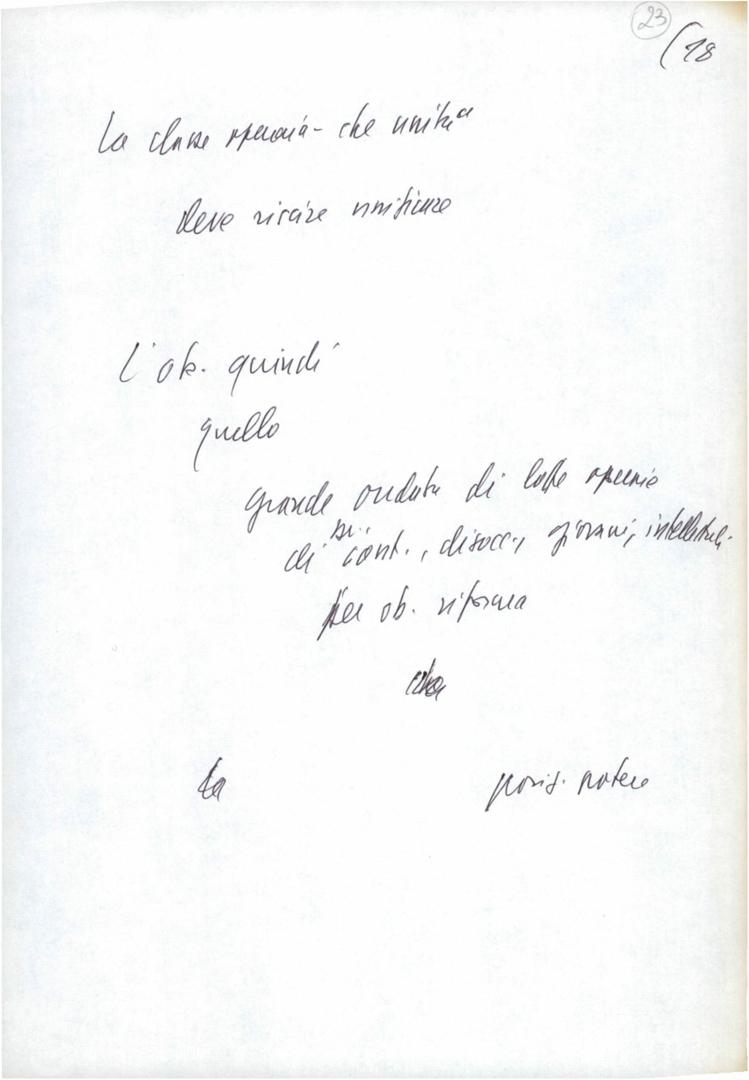 23
(18
La classe operaia - che unita
deve riuscire unificare
L'ob. quindi
quello
grande ondata di lotte operaie
di cont., disocc., giovani, intellettuali
per ob. riforma
che
La posiz. potere